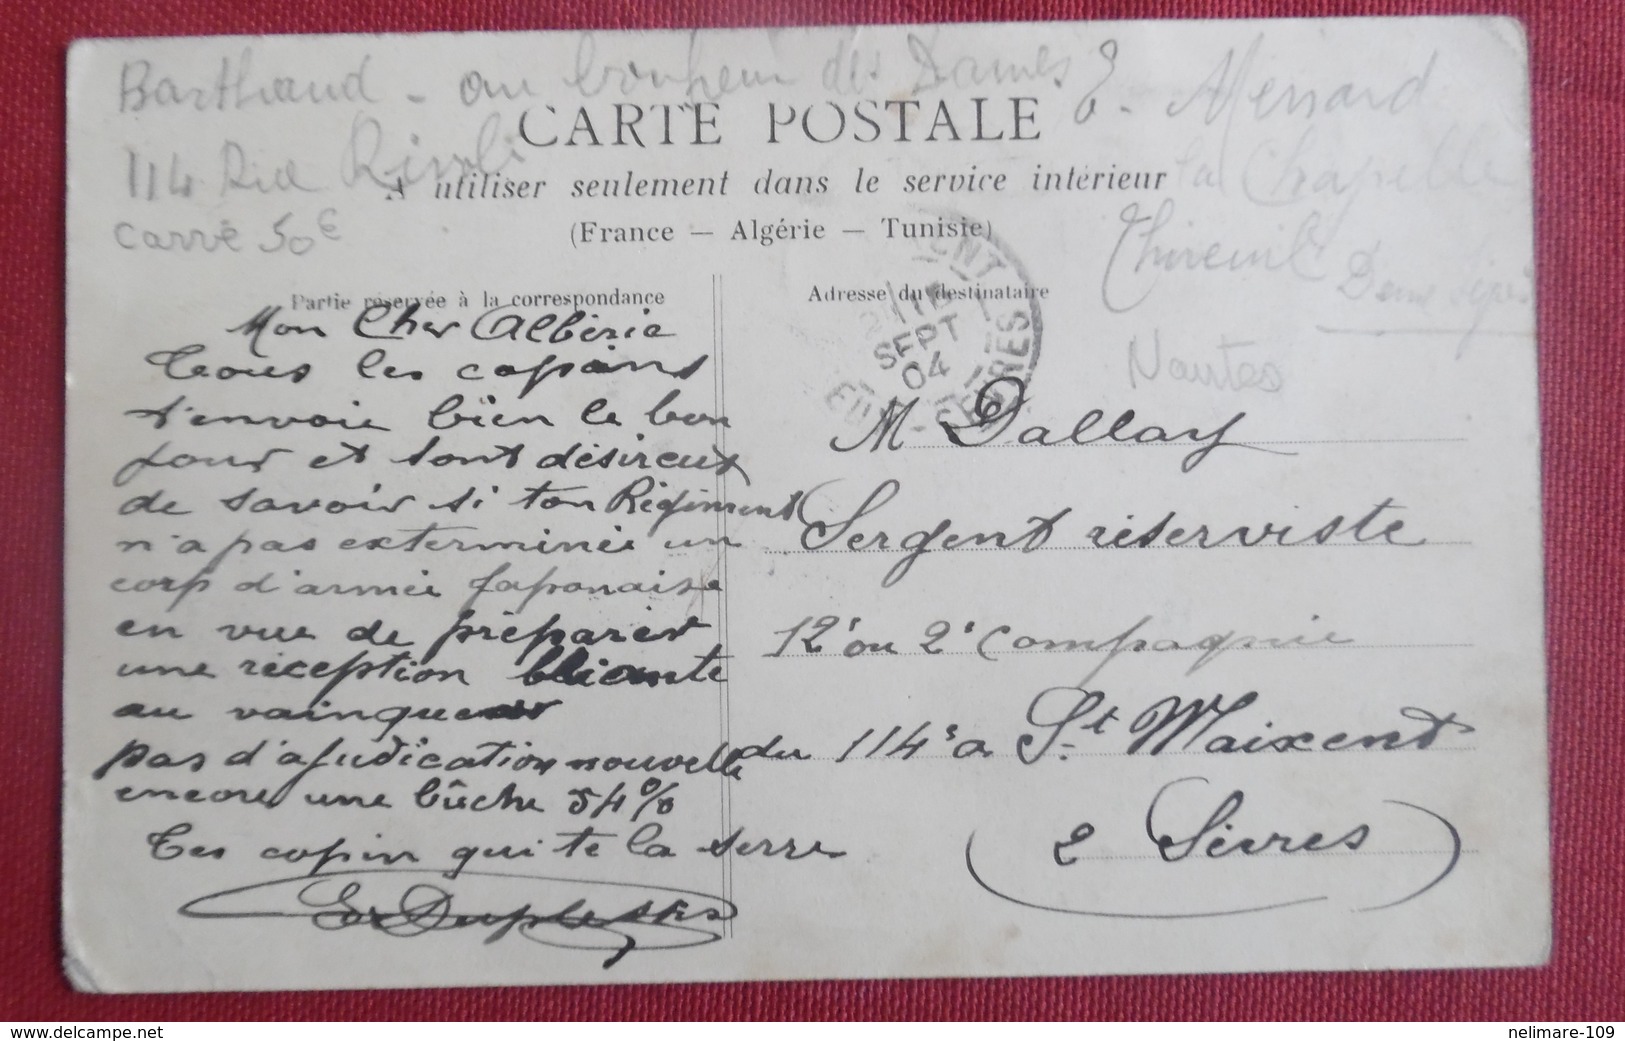 Barthaud - au bonheur des Dames
114 Rue Rivoli
carré 50€
E. Menard
la Chapelle
Thireuil
Deux Sèvres
Nantes
CARTE POSTALE
A utiliser seulement dans le service intérieur
(France — Algérie — Tunisie)
Partie réservée à la correspondance
Adresse du destinataire
SEPT
04
SEVRES
Mon Cher Albérie
Tous les copains
t'envoie bien le bon
jour et sont désireux
de savoir si ton Régiment
n'a pas exterminée un
corp d'armée Japonaise
en vue de préparer
une réception
au vainqueur
pas d'ajudication nouvelle
encore une bûche 54%
Tes copin qui te la serre
M Dallay
Sergent réserviste
12e ou 2e Compagnie
du 114e a St Maixent
(2 Sèvres)
www.delcampe.net
nelimare-109